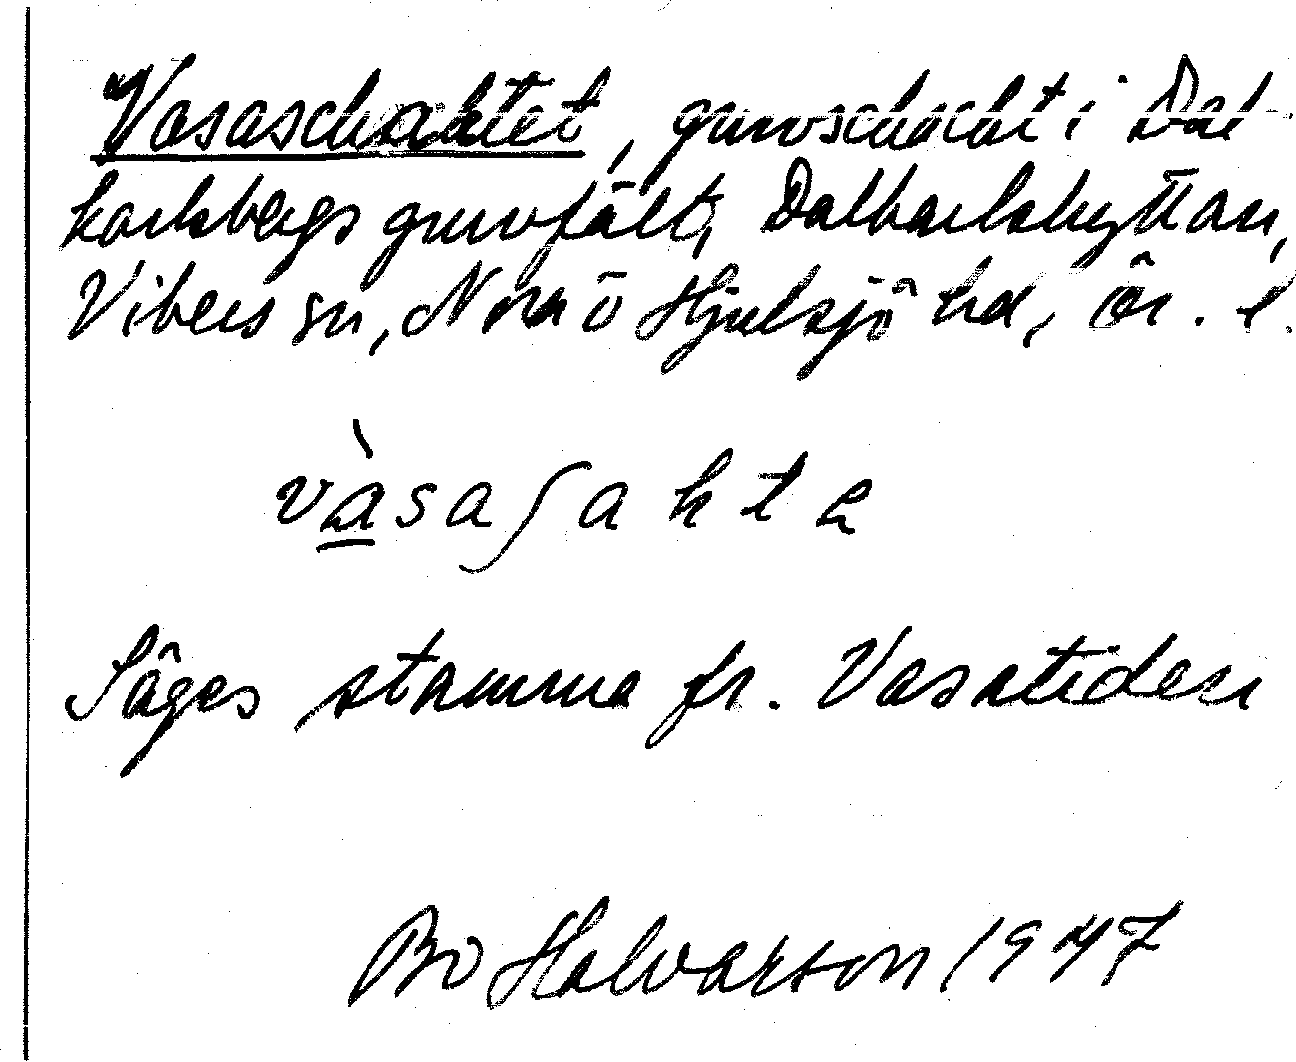 Vasaschaktet, gruvschakt i Dal-
karlsbergs gruvfält, Dalkarlshyttan,
Vikers sn, Nora o Hjulsjö hd, ör. l.
vàsaʃakte
Säges stamma fr. Vasatiden
Bo Halvarson 1947